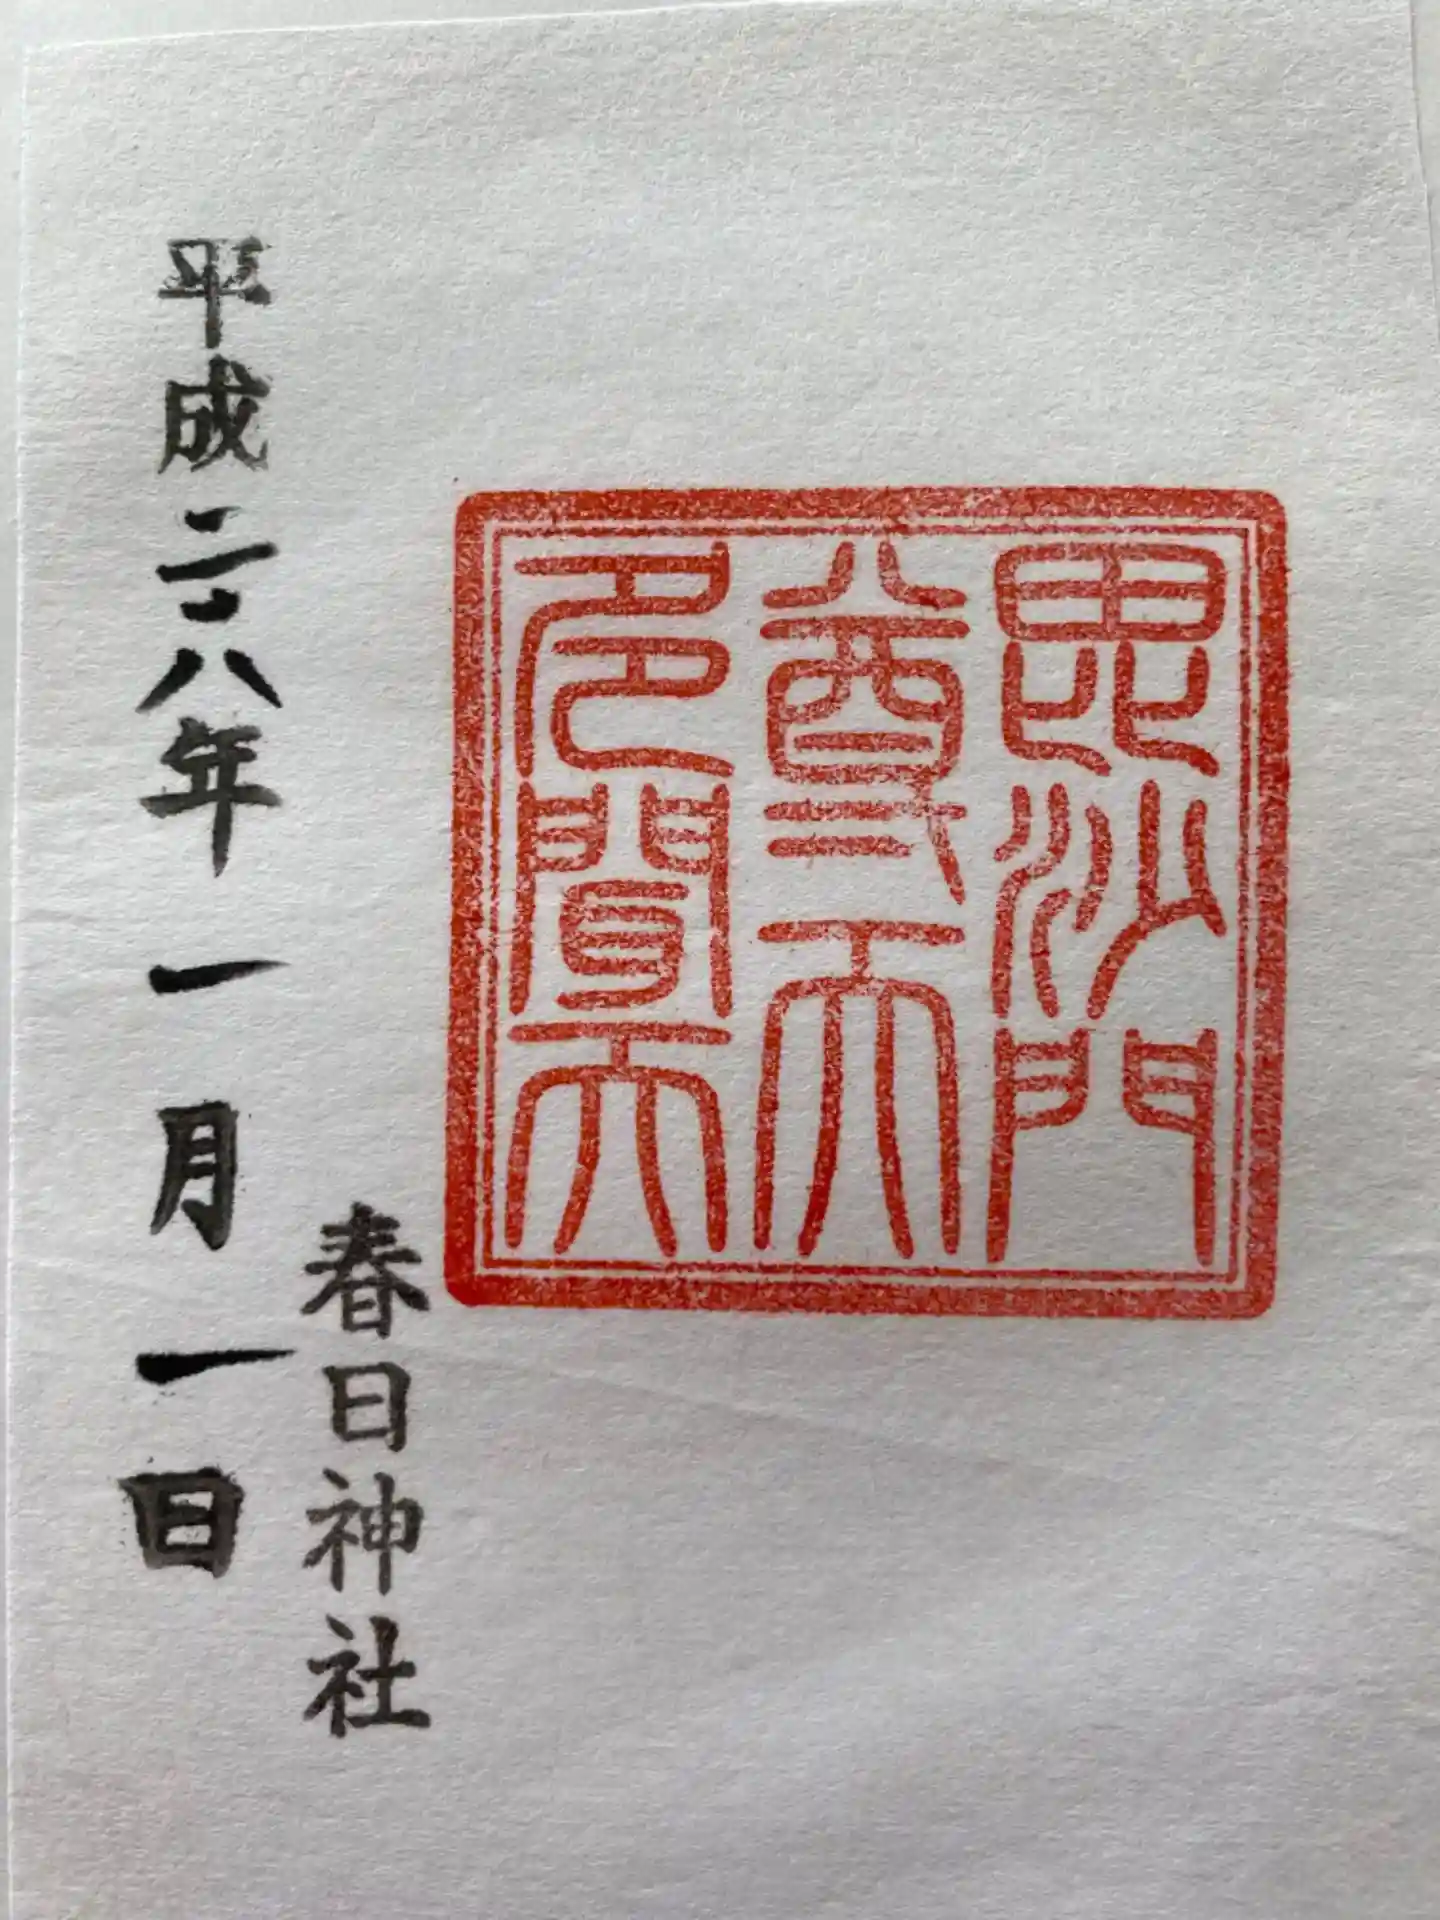 毘沙門
尊天
多聞天
春日神社
平成二・八年一月一日